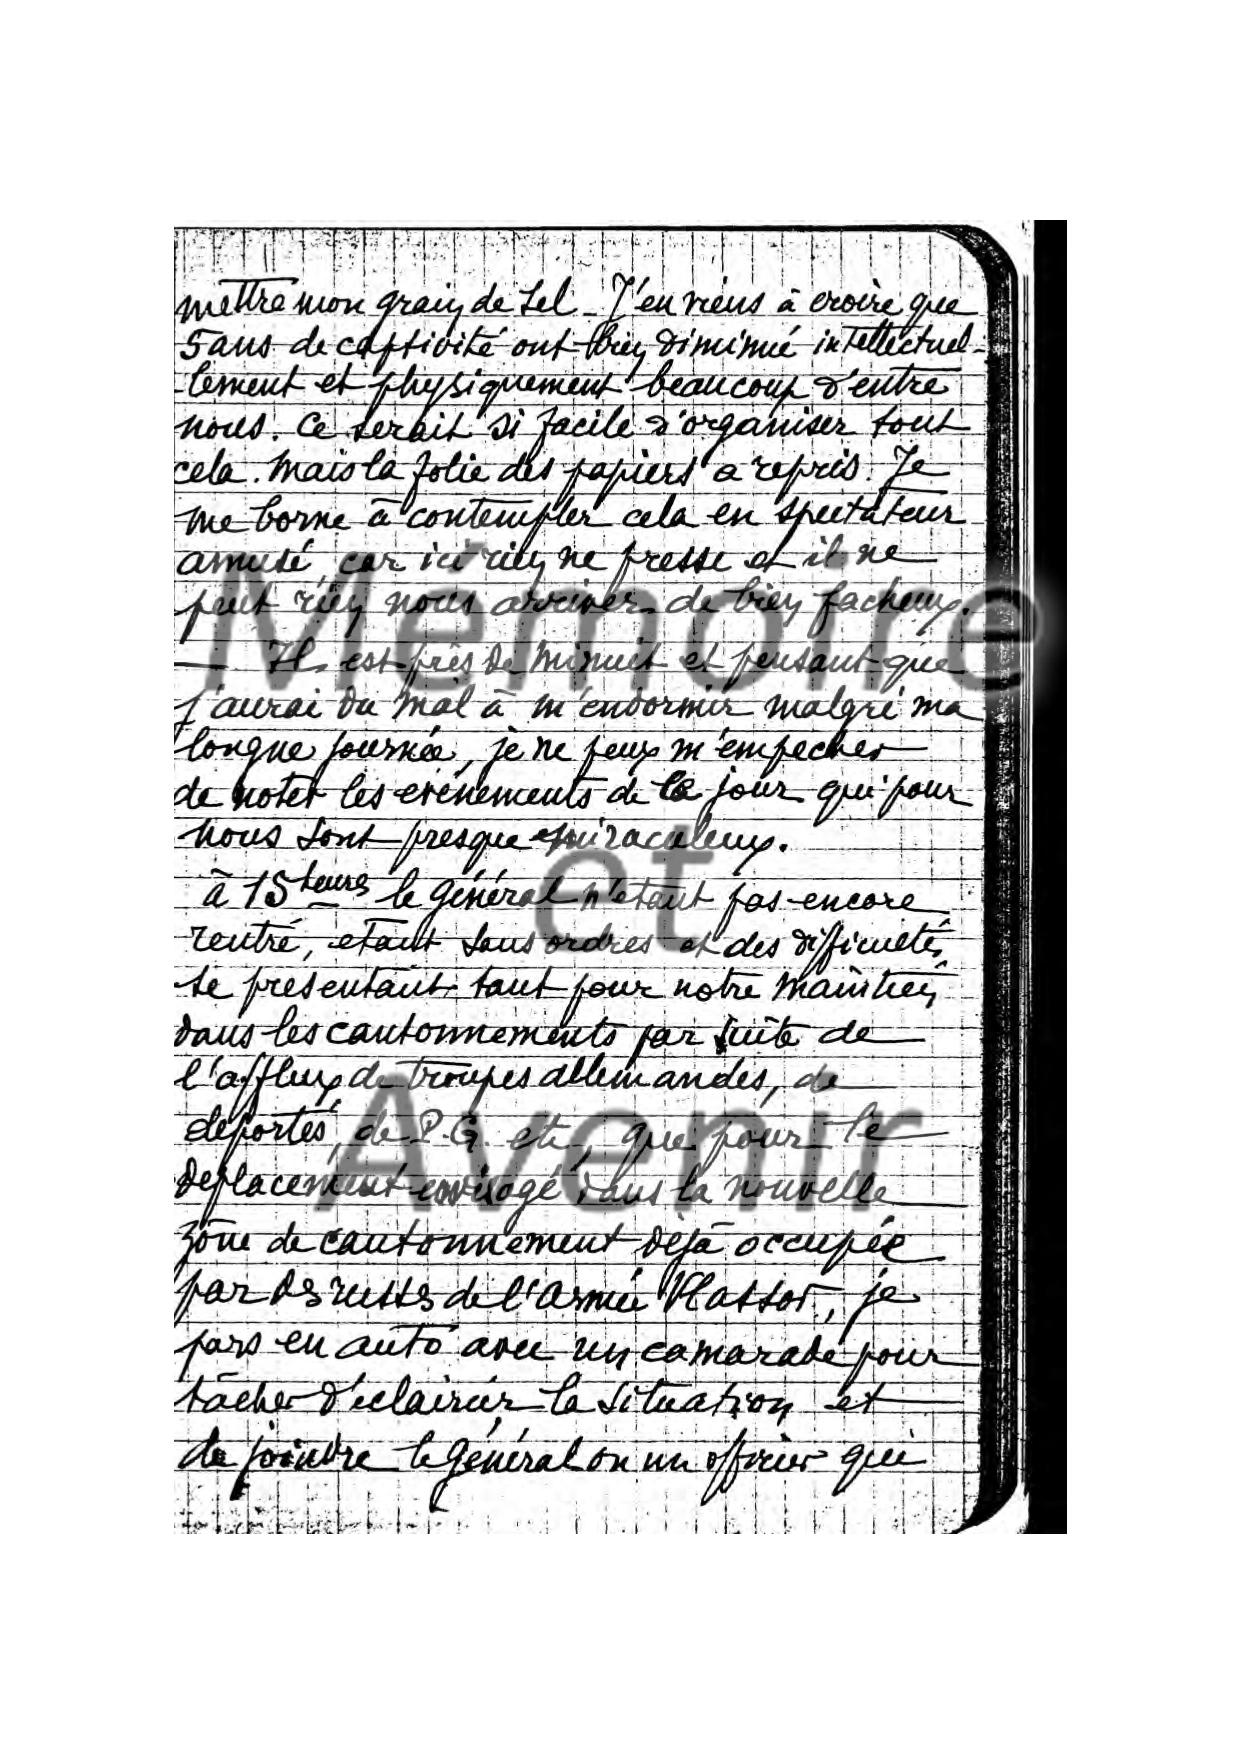 mettre mon grain de sel _ J'en viens à croire que
5 ans de captivité ont bien diminué intellectuel-
lement et physiquement beaucoup d'entre
nous. Ce serait si facile d'organiser tout
cela. Mais la folie des papiers a repris. Je
me borne à contempler cela en spectateur
amusé, car ici rien ne presse et il ne
peut rien nous arriver de bien facheux.
— Il est près de minuit et pensant que
j'aurai du mal à m'endormir malgré ma
longue journée, je ne peux m'empecher
de noter les evénements de ce jour qui pour
nous sont presque miraculeux.
à 15 heures le général n'étant pas encore
rentré, etant sans ordres et des difficultés
se présentant tant pour notre maintien
dans les cantonnements par suite de
l'afflux de troupes allemandes, de
déportés, de P.G. etc, que pour le
deplacement envisagé dans la nouvelle
zône de cantonnement déjà occupée
par des russes de l'armée Vlassov, je
pars en auto avec un camarade pour
tâcher d'éclaircir la situation et
de joindre le général ou un officier qui
Mémoire
et
Avenir